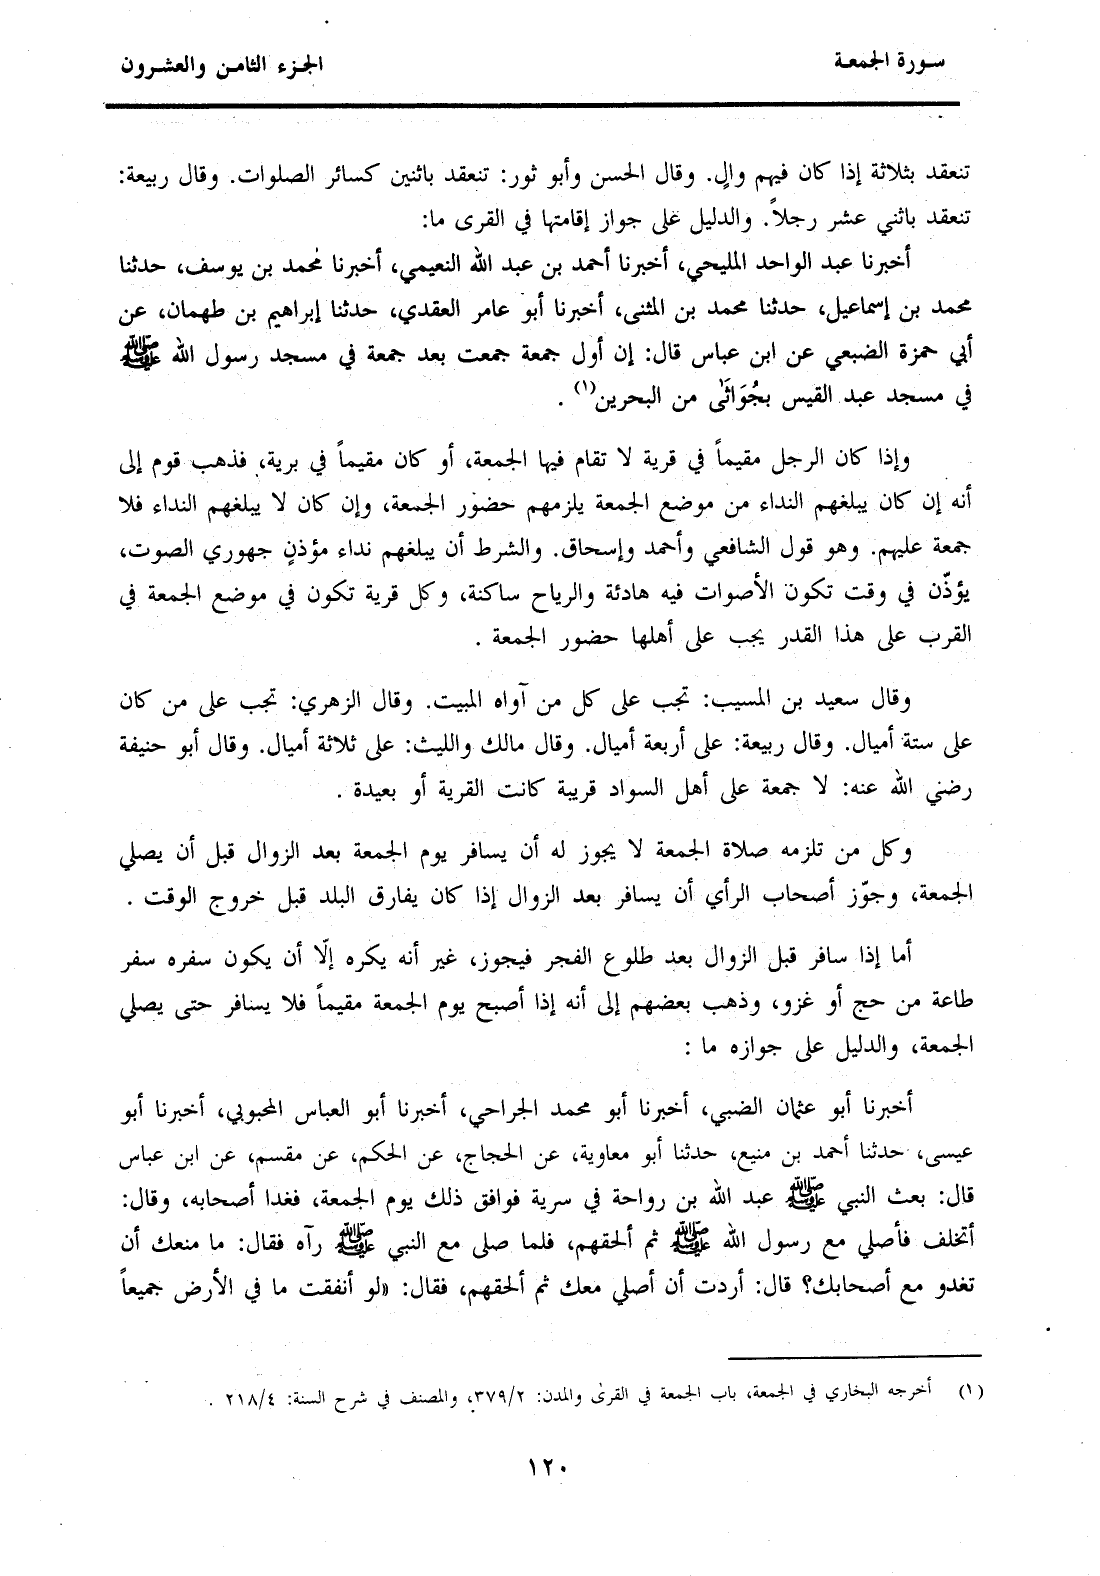 سورة الجمعة
الجزء الثامن والعشرون
تنعقد بثلاثة إذا كان فيهم والٍ. وقال الحسن وأبو ثور: تنعقد باثنين كسائر الصلوات. وقال ربيعة:
تنعقد باثني عشر رجلاً. والدليل على جواز إقامتها في القرى ما:
أخبرنا عبد الواحد المليحي، أخبرنا أحمد بن عبد الله النعيمي، أخبرنا محمد بن يوسف، حدثنا
محمد بن إسماعيل، حدثنا محمد بن المثنى، أخبرنا أبو عامر العقدي، حدثنا إبراهيم بن طهمان، عن
أبي حمزة الضبعي عن ابن عباس قال: إن أول جمعة جمعت بعد جمعة في مسجد رسول الله ﷺ
في مسجد عبد القيس بجُوَاثَى من البحرين(١) .
وإذا كان الرجل مقيماً في قرية لا تقام فيها الجمعة، أو كان مقيماً في برية، فذهب قوم إلى
أنه إن كان يبلغهم النداء من موضع الجمعة يلزمهم حضور الجمعة، وإن كان لا يبلغهم النداء فلا
جمعة عليهم. وهو قول الشافعي وأحمد وإسحاق. والشرط أن يبلغهم نداء مؤذنٍ جهوري الصوت،
يؤذّن في وقت تكون الأصوات فيه هادئة والرياح ساكنة، وكل قرية تكون في موضع الجمعة في
القرب على هذا القدر يجب على أهلها حضور الجمعة .
وقال سعيد بن المسيب: تجب على كل من آواه المبيت. وقال الزهري: تجب على من كان
على ستة أميال. وقال ربيعة: على أربعة أميال. وقال مالك والليث: على ثلاثة أميال. وقال أبو حنيفة
رضي الله عنه: لا جمعة على أهل السواد قريبة كانت القرية أو بعيدة .
وكل من تلزمه صلاة الجمعة لا يجوز له أن يسافر يوم الجمعة بعد الزوال قبل أن يصلي
الجمعة، وجوّز أصحاب الرأي أن يسافر بعد الزوال إذا كان يفارق البلد قبل خروج الوقت .
أما إذا سافر قبل الزوال بعد طلوع الفجر فيجوز، غير أنه يكره إلّا أن يكون سفره سفر
طاعة من حج أو غزو، وذهب بعضهم إلى أنه إذا أصبح يوم الجمعة مقيماً فلا يسافر حتى يصلي
الجمعة، والدليل على جوازه ما :
أخبرنا أبو عثمان الضبي، أخبرنا أبو محمد الجراحي، أخبرنا أبو العباس المحبوبي، أخبرنا أبو
عيسى، حدثنا أحمد بن منيع، حدثنا أبو معاوية، عن الحجاج، عن الحكم، عن مقسم، عن ابن عباس
قال: بعث النبي ﷺ عبد الله بن رواحة في سرية فوافق ذلك يوم الجمعة، فغدا أصحابه، وقال:
أتخلف فأصلي مع رسول الله ﷺ ثم ألحقهم، فلما صلى مع النبي ﷺ رآه فقال: ما منعك أن
تغدو مع أصحابك؟ قال: أردت أن أصلي معك ثم ألحقهم، فقال: «لو أنفقت ما في الأرض جميعاً
(١) أخرجه البخاري في الجمعة، باب الجمعة في القرى والمدن: ٣٧٩/٢، والمصنف في شرح السنة: ٢١٨/٤ .
١٢٠